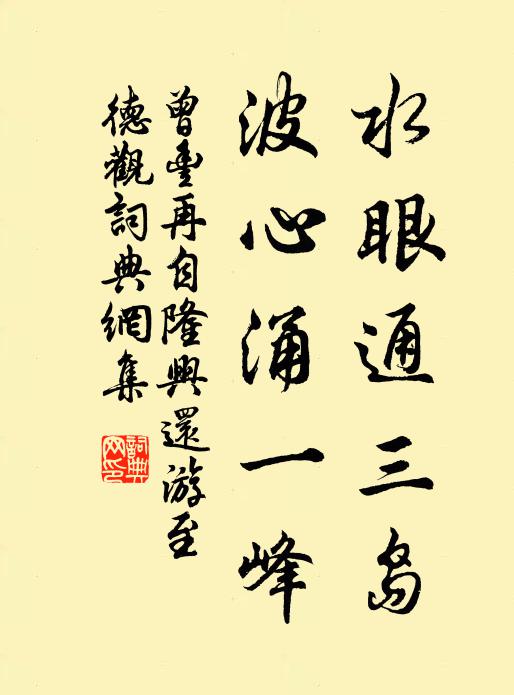 水眼通三岛
波心涌一峰
曾豐再自隆興還游至
德觀詞典網集
詞典网印